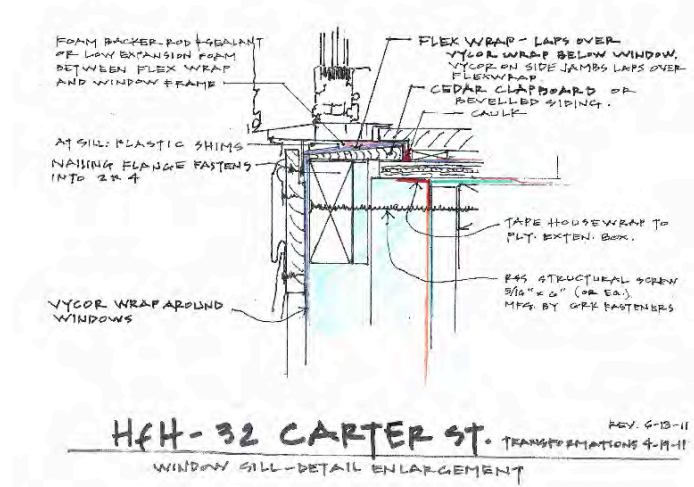 FOAM BACKER-ROD & SEALANT
OR LOW EXPANSION FOAM
BETWEEN FLEX WRAP
AND WINDOW FRAME
AT SILL: PLASTIC SHIMS
NAILING FLANGE FASTENS
INTO 2x4
VYCOR WRAP AROUND
WINDOWS
FLEX WRAP - LAPS OVER
VYCOR WRAP BELOW WINDOW.
VYCOR ON SIDE JAMBS LAPS OVER
FLEXWRAP.
CEDAR CLAPBOARD OR
BEVELLED SIDING.
CAULK
TAPE HOUSEWRAP TO
PLY. EXTEN. BOX.
RSS STRUCTURAL SCREW
5/16" x 6" (OR EQ.)
MFG. BY GRK FASTENERS
HfH - 32 CARTER ST.
REV. 6-13-11
TRANSFORMATIONS 4-19-11
WINDOW SILL - DETAIL ENLARGEMENT